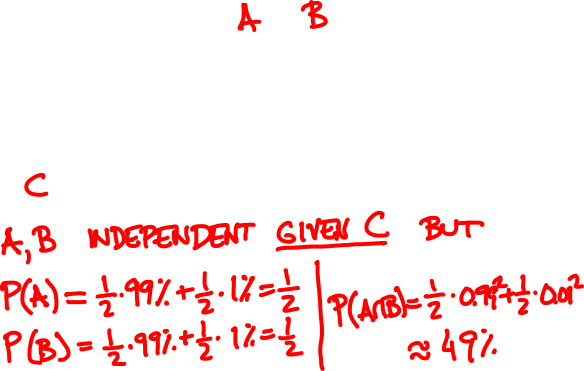 A B
C
A, B INDEPENDENT GIVEN C BUT
P(A) = 1/2 · 99% + 1/2 · 1% = 1/2
P(B) = 1/2 · 99% + 1/2 · 1% = 1/2
P(A∩B) = 1/2 · 0.99² + 1/2 · 0.01²
≈ 49%